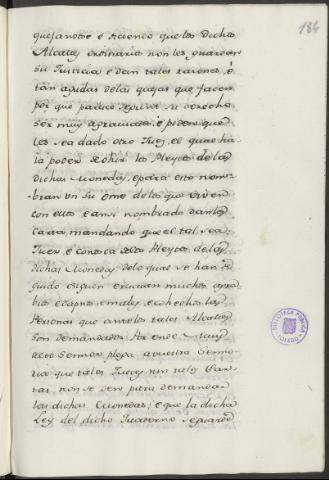 184
quejandose e diciendo que los dichos
Alcaldes ordinarios non les guardan
su Justicia e dan tales razones, é
tan agudas delas quejas que facen
por que parece seguir su derecho
ser muy agraviados e piden que
les sea dado otro Juez, el qual ha-
ia poder de ohir los Pleytos de las
dichas monedas, epara esto nom-
bran un su ome de los que viven
con ellos e ansi nombrado danles
Carta mandando que el tal sea
Juez e conosca delos Pleytos de las
dichas Monedas delo qual se han se-
guido e siguen e causan muchos agra-
bios e daños e males, e cohechos, las
Personas que antelos tales Alcaldes
son demandados Por ende Muy
alto Sennor plega a vuestra Senno-
ria que tales Jueces nin tales Car-
tas non se den para demandar
las dichas Monedas; e que la dicha
Ley del dicho Quaderno se guarde
BIBLIOTECA PUBLICA
TOLEDO